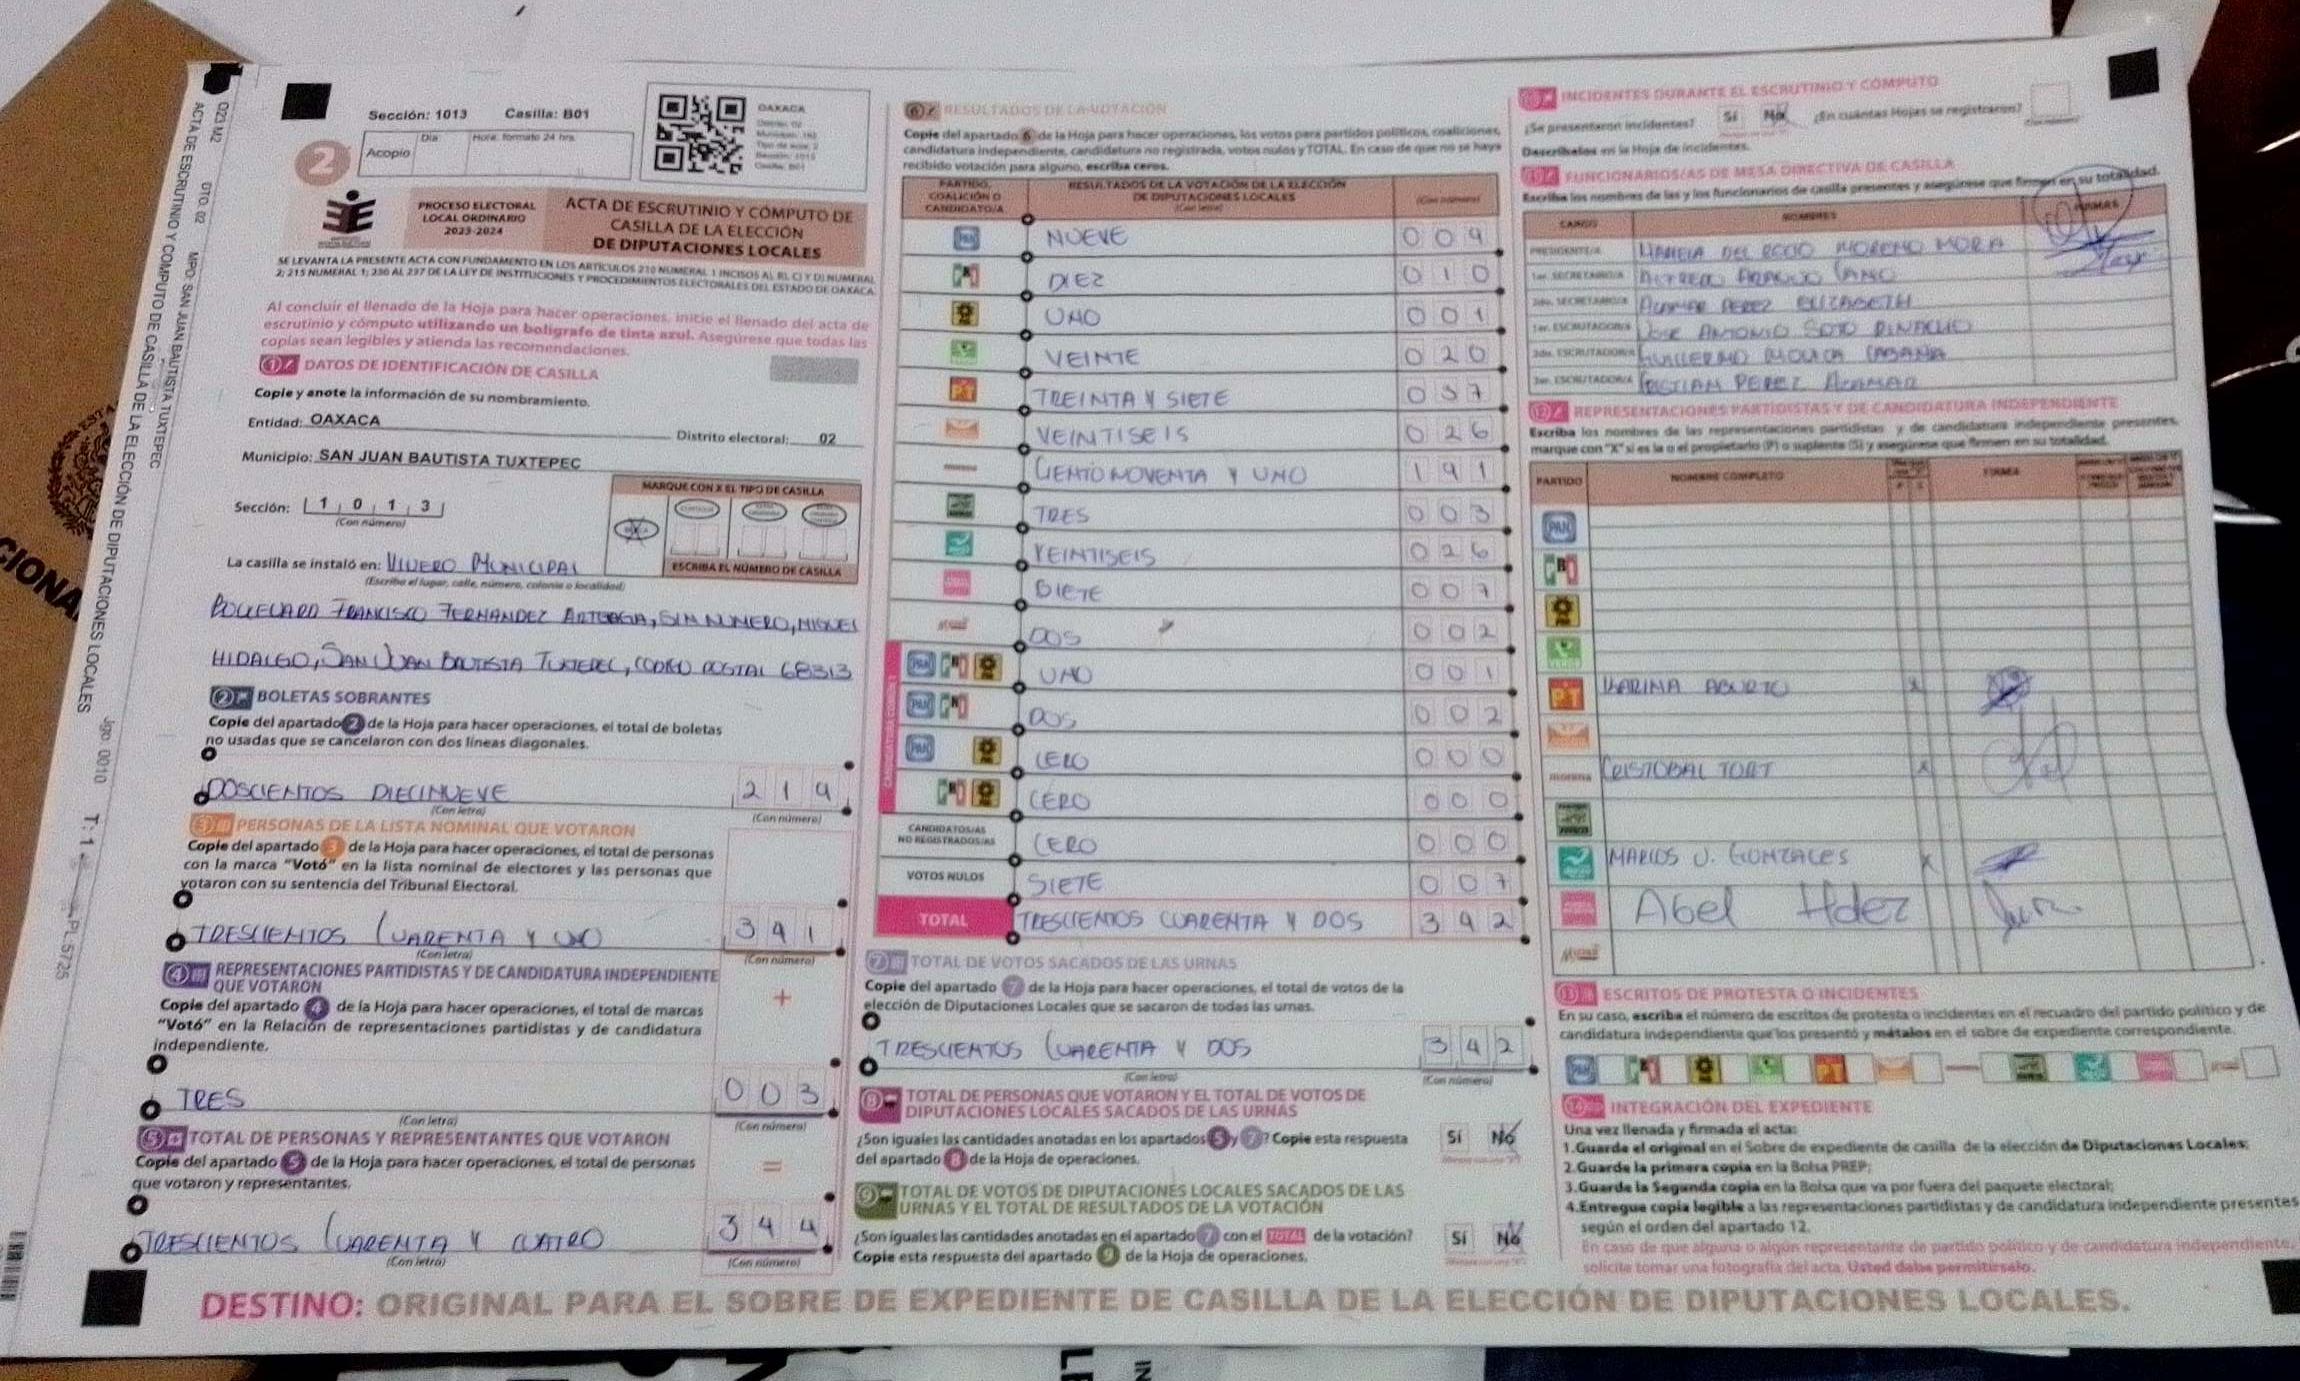 Sección: 1013 Casilla: B01
Acopio Día Hora: formato 24 hrs.
OAXACA
2
PROCESO ELECTORAL
LOCAL ORDINARIO
2023-2024
ACTA DE ESCRUTINIO Y CÓMPUTO DE
CASILLA DE LA ELECCIÓN
DE DIPUTACIONES LOCALES
SE LEVANTA LA PRESENTE ACTA CON FUNDAMENTO EN LOS ARTÍCULOS 210 NUMERAL 1 INCISOS A) B), C) Y D) NUMERAL
2; 215 NUMERAL 1; 230 AL 237 DE LA LEY DE INSTITUCIONES Y PROCEDIMIENTOS ELECTORALES DEL ESTADO DE OAXACA.
Al concluir el llenado de la Hoja para hacer operaciones, inicie el llenado del acta de
escrutinio y cómputo utilizando un bolígrafo de tinta azul. Asegúrese que todas las
copias sean legibles y atienda las recomendaciones.
1 DATOS DE IDENTIFICACIÓN DE CASILLA
Copie y anote la información de su nombramiento.
Entidad: OAXACA Distrito electoral: 02
Municipio: SAN JUAN BAUTISTA TUXTEPEC
Sección: 1 0 1 3
(Con número)
MARQUE CON X EL TIPO DE CASILLA
ESCRIBA EL NÚMERO DE CASILLA
La casilla se instaló en: VIVERO MUNICIPAL
(Escriba el lugar, calle, número, colonia o localidad)
BOULEVARD FRANCISCO FERNANDEZ ARTEAGA, SIN NUMERO, MIGUEL
HIDALGO, SAN JUAN BAUTISTA TUXTEPEC, CODIGO POSTAL 68313
2 BOLETAS SOBRANTES
Copie del apartado 2 de la Hoja para hacer operaciones, el total de boletas
no usadas que se cancelaron con dos líneas diagonales.
DOSCIENTOS DIECINUEVE 2 1 9
(Con letra) (Con número)
3 PERSONAS DE LA LISTA NOMINAL QUE VOTARON
Copie del apartado 3 de la Hoja para hacer operaciones, el total de personas
con la marca "Votó" en la lista nominal de electores y las personas que
votaron con su sentencia del Tribunal Electoral.
TRESCIENTOS CUARENTA Y UNO 3 4 1
(Con letra) (Con número)
4 REPRESENTACIONES PARTIDISTAS Y DE CANDIDATURA INDEPENDIENTE
QUE VOTARON
Copie del apartado 4 de la Hoja para hacer operaciones, el total de marcas
"Votó" en la Relación de representaciones partidistas y de candidatura
independiente.
+
TRES 0 0 3
(Con letra) (Con número)
5 TOTAL DE PERSONAS Y REPRESENTANTES QUE VOTARON
Copie del apartado 5 de la Hoja para hacer operaciones, el total de personas
que votaron y representantes.
=
TRESCIENTOS CUARENTA Y CUATRO 3 4 4
(Con letra) (Con número)
6 RESULTADOS DE LA VOTACIÓN
Copie del apartado 6 de la Hoja para hacer operaciones, los votos para partidos políticos, coaliciones,
candidatura independiente, candidatura no registrada, votos nulos y TOTAL. En caso de que no se haya
recibido votación para alguno, escriba ceros.
PARTIDO, COALICIÓN O CANDIDATO/A RESULTADOS DE LA VOTACIÓN DE LA ELECCIÓN DE DIPUTACIONES LOCALES (Con letra) (Con número)
PAN NUEVE 0 0 9
PRI DIEZ 0 1 0
PRD UNO 0 0 1
VERDE VEINTE 0 2 0
PT TREINTA Y SIETE 0 3 7
VEINTISEIS 0 2 6
morena CIENTO NOVENTA Y UNO 1 9 1
TRES 0 0 3
VEINTISEIS 0 2 6
SIETE 0 0 7
DOS 0 0 2
CANDIDATURA COMÚN 1
PAN PRI PRD UNO 0 0 1
PAN PRI DOS 0 0 2
PAN PRD CERO 0 0 0
PRI PRD CERO 0 0 0
CANDIDATOS/AS NO REGISTRADOS/AS CERO 0 0 0
VOTOS NULOS SIETE 0 0 7
TOTAL TRESCIENTOS CUARENTA Y DOS 3 4 2
7 TOTAL DE VOTOS SACADOS DE LAS URNAS
Copie del apartado 7 de la Hoja para hacer operaciones, el total de votos de la
elección de Diputaciones Locales que se sacaron de todas las urnas.
TRESCIENTOS CUARENTA Y DOS 3 4 2
(Con letra) (Con número)
8 TOTAL DE PERSONAS QUE VOTARON Y EL TOTAL DE VOTOS DE
DIPUTACIONES LOCALES SACADOS DE LAS URNAS
¿Son iguales las cantidades anotadas en los apartados 5 y 7? Copie esta respuesta
del apartado 8 de la Hoja de operaciones.
Sí No
9 TOTAL DE VOTOS DE DIPUTACIONES LOCALES SACADOS DE LAS
URNAS Y EL TOTAL DE RESULTADOS DE LA VOTACIÓN
¿Son iguales las cantidades anotadas en el apartado 7 con el TOTAL de la votación?
Copie esta respuesta del apartado 9 de la Hoja de operaciones.
Sí No
INCIDENTES DURANTE EL ESCRUTINIO Y CÓMPUTO
¿Se presentaron incidentes? Sí No ¿En cuántas Hojas se registraron?
Descríbalos en la Hoja de incidentes.
FUNCIONARIOS/AS DE MESA DIRECTIVA DE CASILLA
Escriba los nombres de las y los funcionarios de casilla presentes y asegúrese que firmen en su totalidad.
CARGO NOMBRES FIRMAS
PRESIDENTE/A MARIELA DEL ROCIO MORENO MORA
1er. SECRETARIO/A ALFREDO ARAGUJO CANO
2do. SECRETARIO/A ACAMAR PEREZ ELIZABETH
1er. ESCRUTADOR/A JOSE ANTONIO SOTO
2do. ESCRUTADOR/A GUILLERMO MOLICA CABAÑA
3er. ESCRUTADOR/A CRISTIAN PEREZ ACAMAR
12 REPRESENTACIONES PARTIDISTAS Y DE CANDIDATURA INDEPENDIENTE
Escriba los nombres de las representaciones partidistas y de candidatura independiente presentes,
marque con "X" si es la o el propietario (P) o suplente (S) y asegúrese que firmen en su totalidad.
PARTIDO NOMBRE COMPLETO FIRMA
PAN
PRI
PRD
VERDE
PT KARINA ABURTO X
morena CRISTOBAL TORT X
MARCOS J. GONZALES X
Abel Hdez
13 ESCRITOS DE PROTESTA O INCIDENTES
En su caso, escriba el número de escritos de protesta o incidentes en el recuadro del partido político y de
candidatura independiente que los presentó y métalos en el sobre de expediente correspondiente.
14 INTEGRACIÓN DEL EXPEDIENTE
Una vez llenada y firmada el acta:
1.Guarde el original en el Sobre de expediente de casilla de la elección de Diputaciones Locales;
2.Guarde la primera copia en la Bolsa PREP;
3.Guarde la Segunda copia en la Bolsa que va por fuera del paquete electoral;
4.Entregue copia legible a las representaciones partidistas y de candidatura independiente presentes
según el orden del apartado 12.
En caso de que alguna o algún representante de partido político y de candidatura independiente,
solicite tomar una fotografía del acta. Usted debe permitírselo.
DESTINO: ORIGINAL PARA EL SOBRE DE EXPEDIENTE DE CASILLA DE LA ELECCIÓN DE DIPUTACIONES LOCALES.
O23 M2 DTO. 02 MPO: SAN JUAN BAUTISTA TUXTEPEC
ACTA DE ESCRUTINIO Y COMPUTO DE CASILLA DE LA ELECCIÓN DE DIPUTACIONES LOCALES Jgo. 0010 T: 1 PL.5725
CIONA